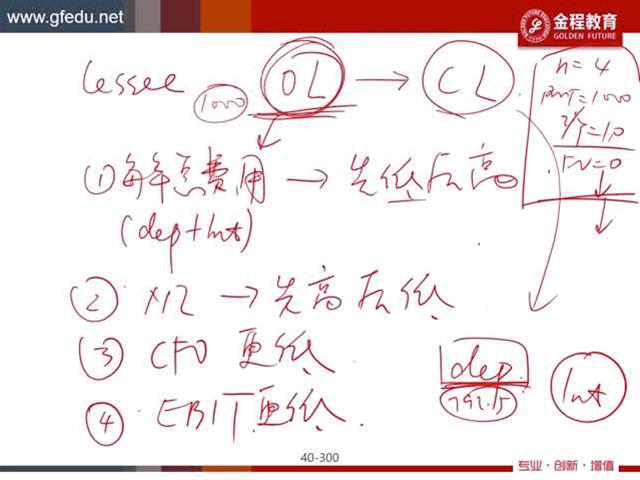 www.gfedu.net
金程教育
GOLDEN FUTURE
lessee OL → CL
1000
n=4
PMT=1000
I/Y=10
FV=0
①每年总费用 → 先低后高
(dep+Int)
② NI → 先高后低
③ CFO 更低
④ EBIT更低
dep.
792.5
Int
40-300
专业·创新·增值